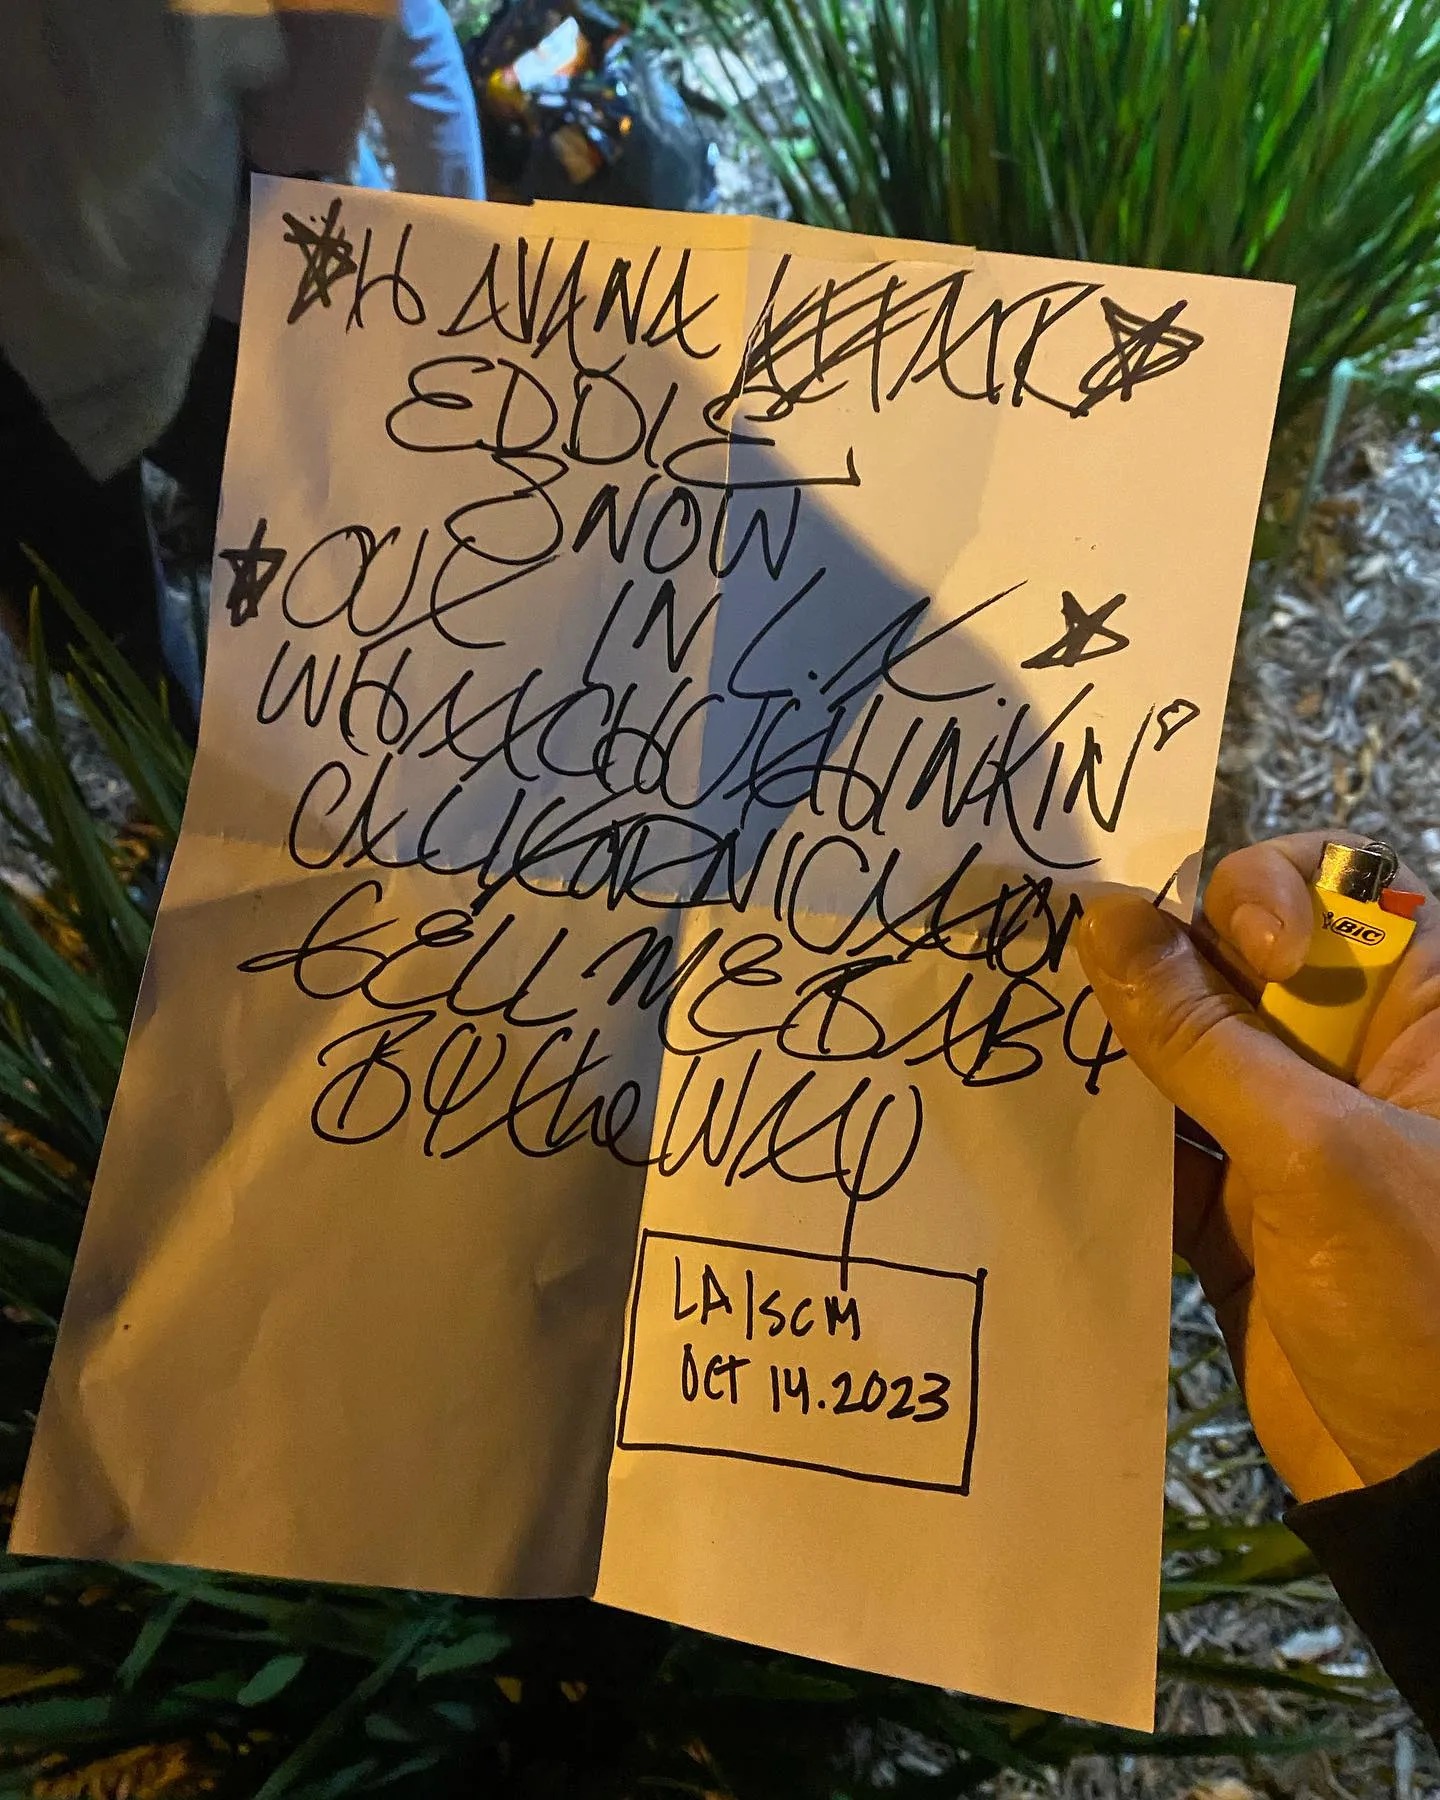 HAVANA AFFAIR
EDDIE
SNOW
OUT IN L.A.
WHATCHU THINKIN'
CALIFORNICATION
TELL ME BABY
BY the WAY
LA/SCM
OCT 14.2023
BIC